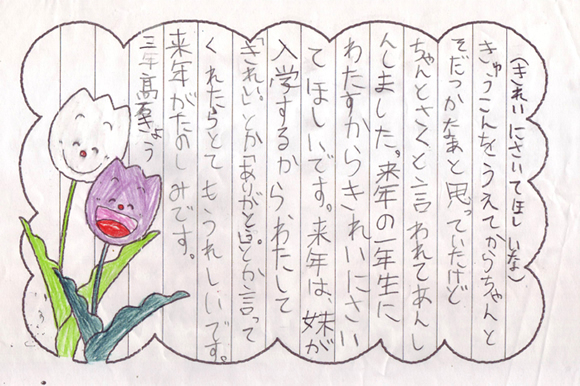 (きれいにさいてほしいな)
きゅうこんをうえてからちゃんと
そだつかなあと思っていたけど
ちゃんとさくと言われてあんし
んしました。来年の一年生に
わたすからきれいにさい
てほしいです。来年は、妹が
入学するからわたして
「きれい。」とか「ありがとう。」とか言って
くれたらとてもうれしいです。
来年がたのしみです。
三年高原きょう